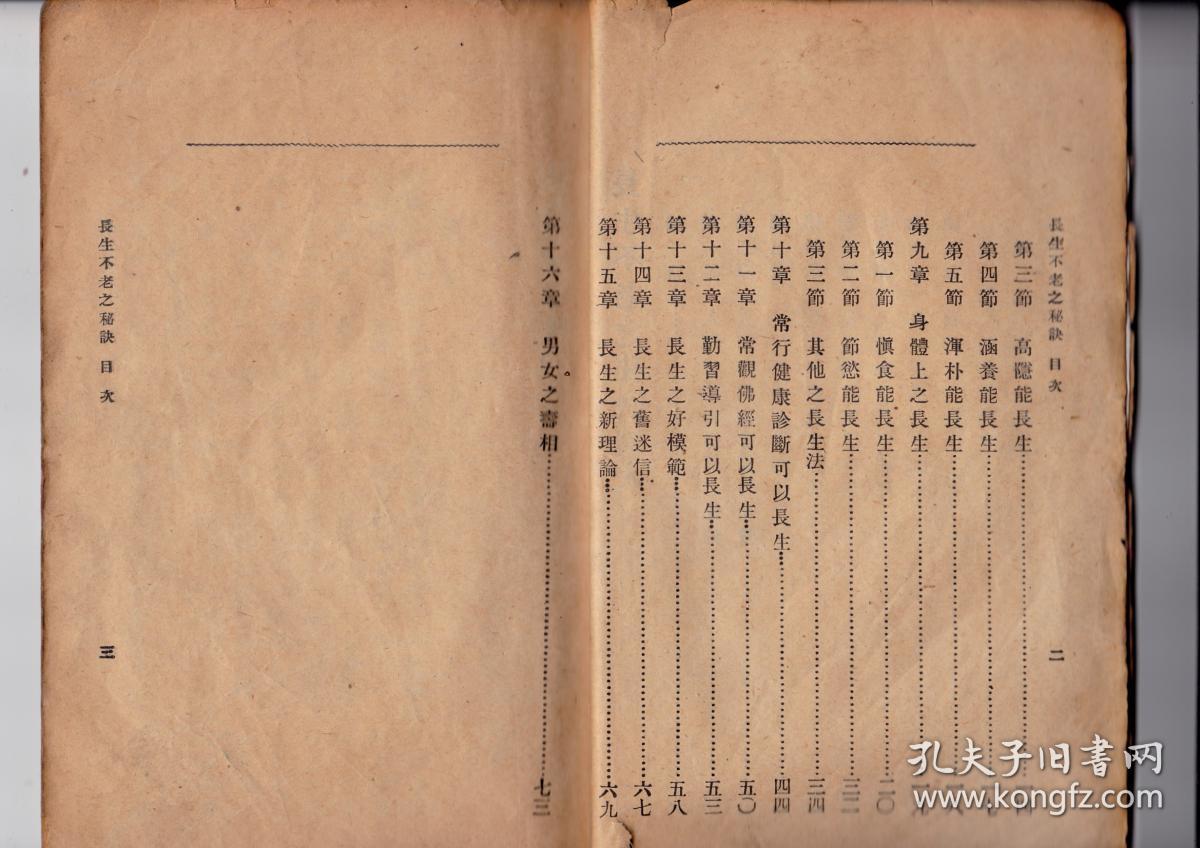 長生不老之秘訣 目次
二
第三節 高隱能長生
第四節 涵養能長生
第五節 渾朴能長生
第九章 身體上之長生
第一節 愼食能長生 二〇
第二節 節慾能長生 三二
第三節 其他之長生法 三四
第十章 常行健康診斷可以長生 四四
第十一章 常觀佛經可以長生 五〇
第十二章 勤習導引可以長生 五三
第十三章 長生之好模範 五八
第十四章 長生之舊迷信 六七
第十五章 長生之新理論 六九
第十六章 男女之壽相 七三
長生不老之秘訣 目次
三
孔夫子旧书网
www.kongfz.com